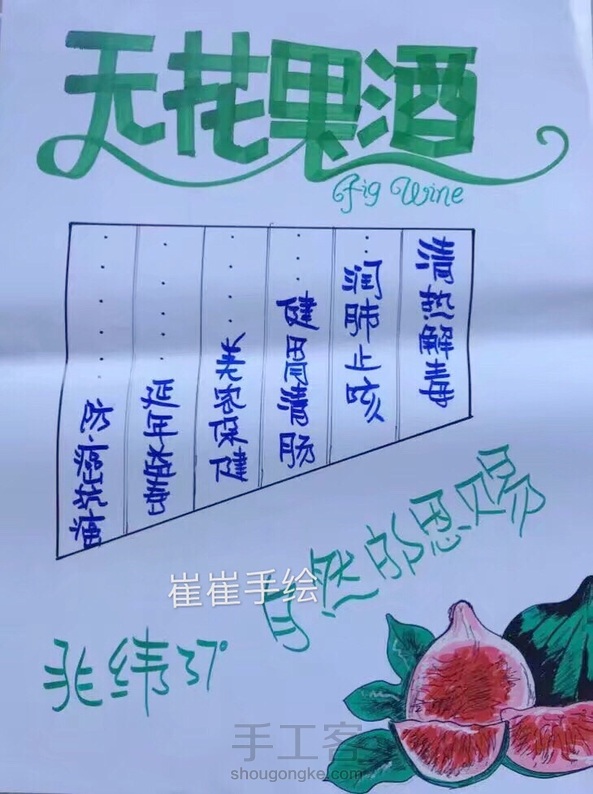 无花果酒
Fig Wine
清热解毒
润肺止咳
健胃清肠
美容保健
延年益寿
防癌抗癌
自然的恩赐
北纬37°
崔崔手绘
手工客
shougongke.com